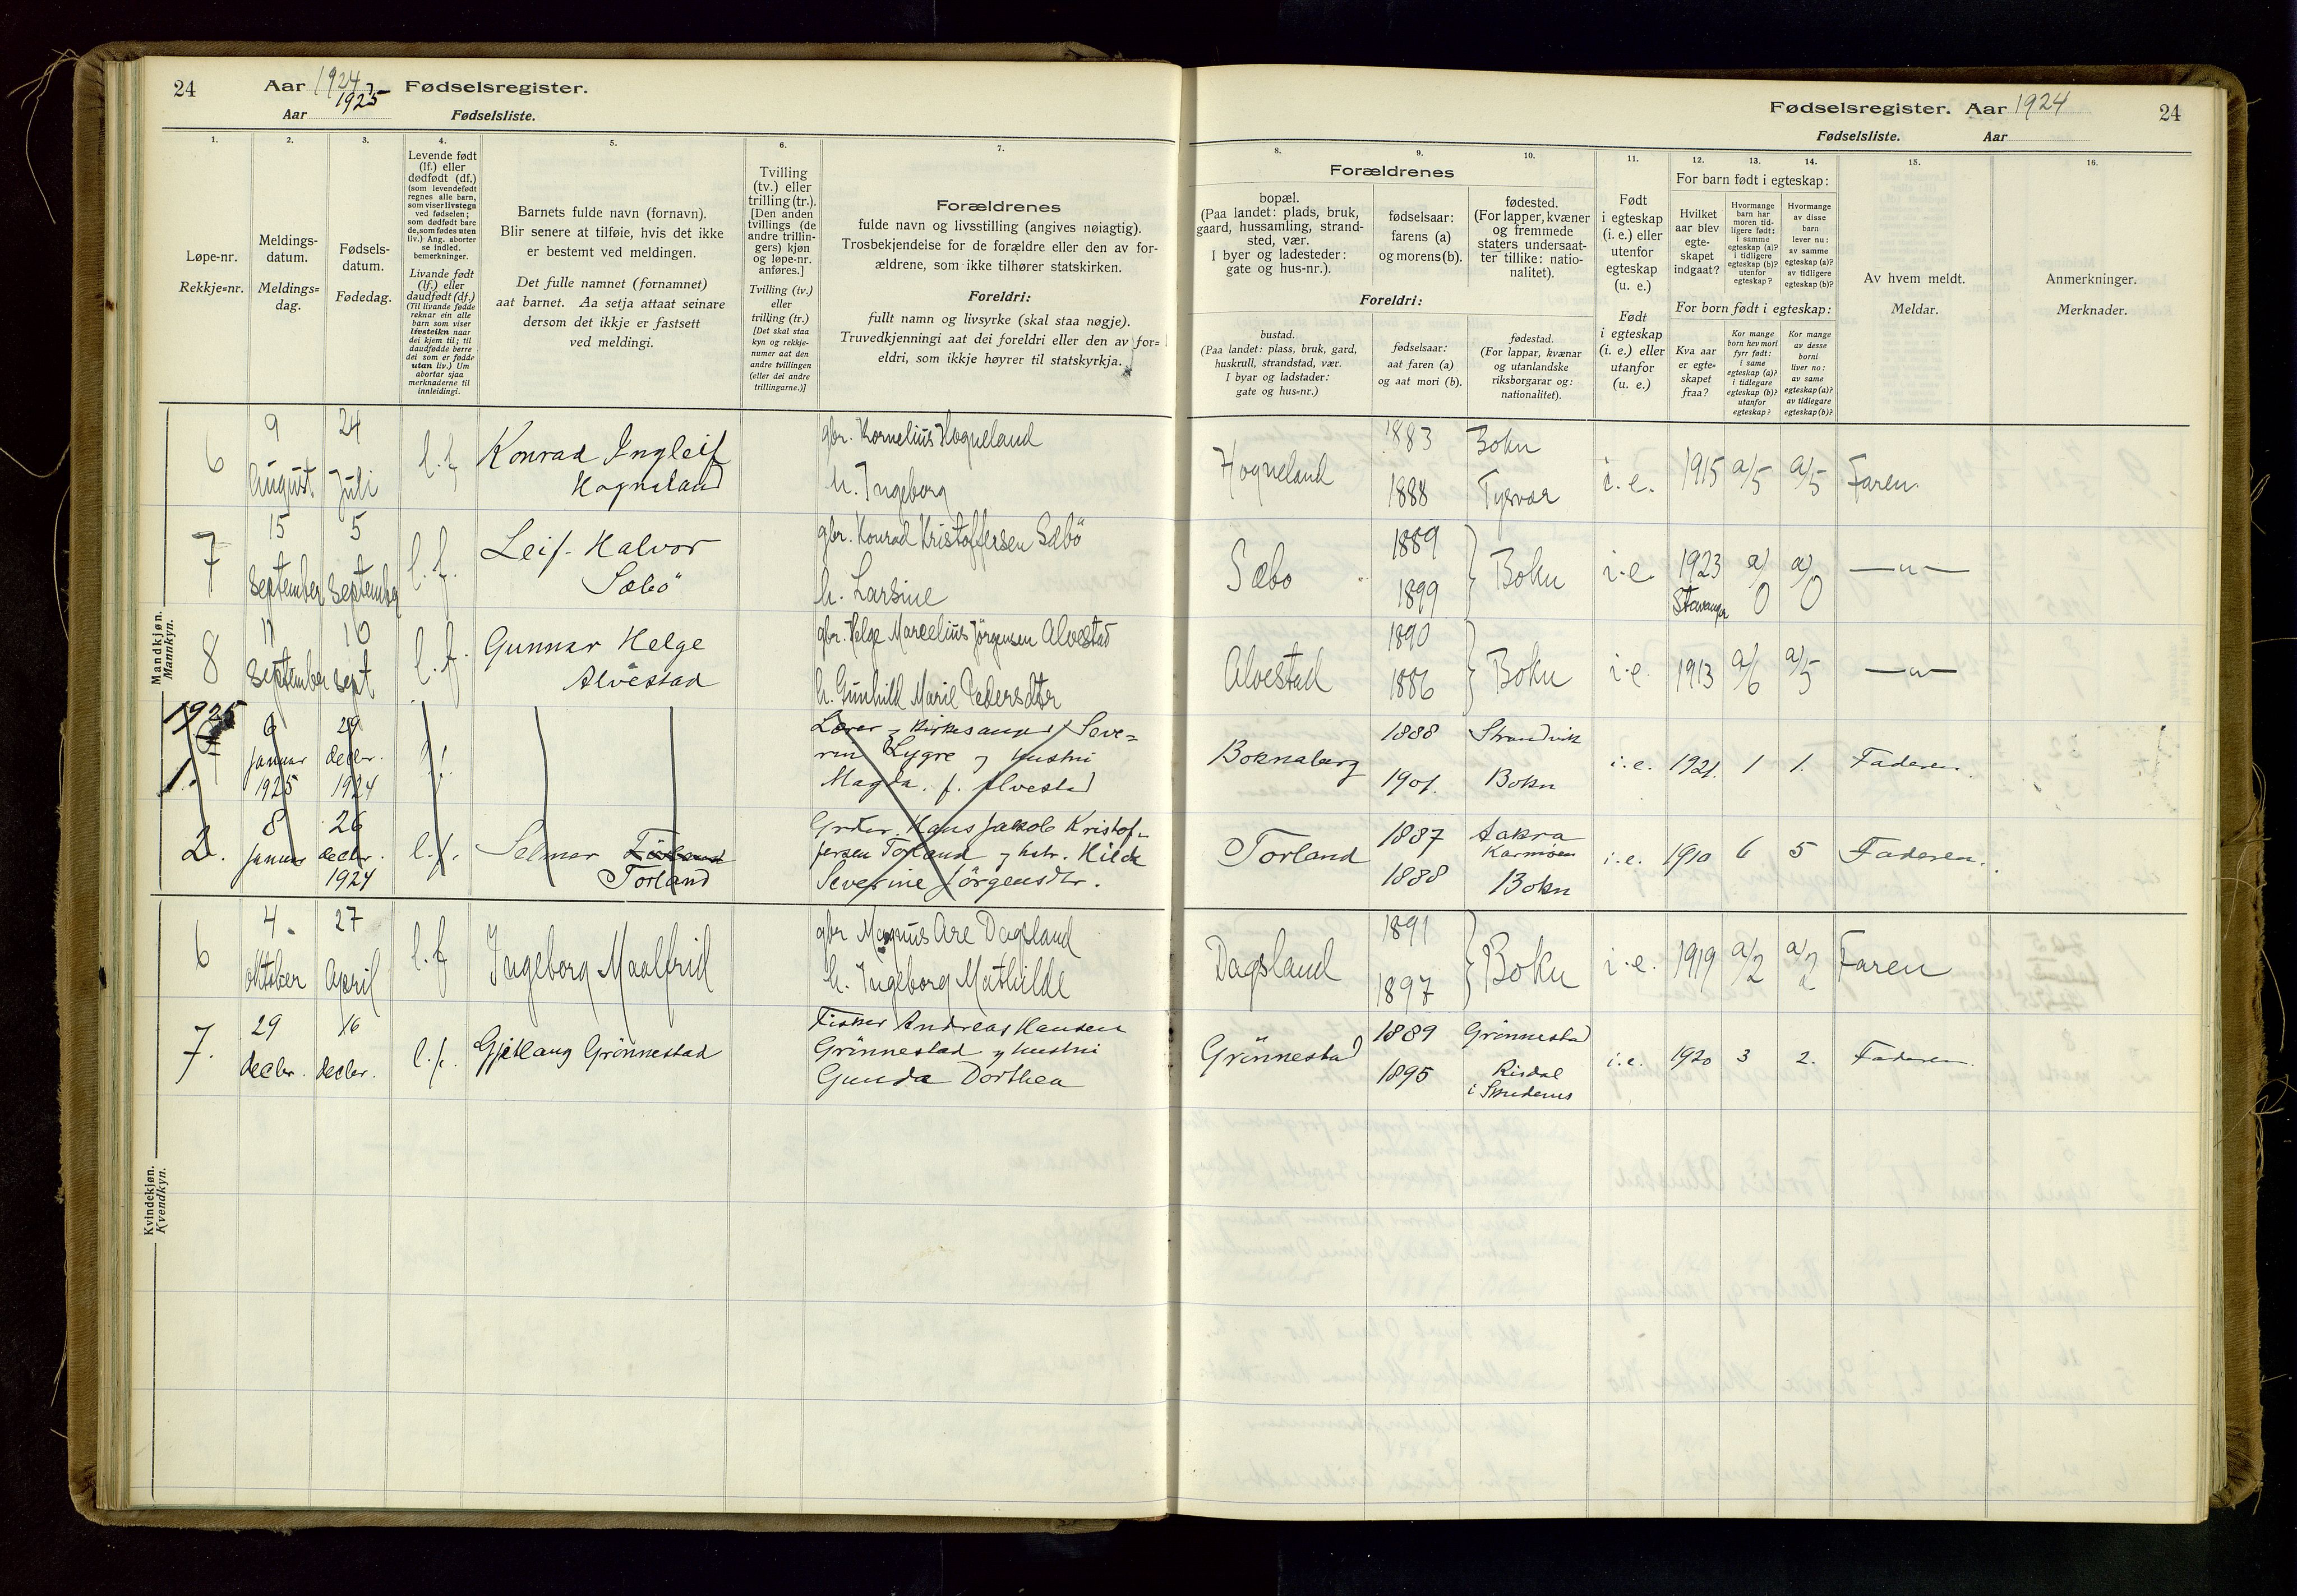 24 Aar 1924, Fødselsregister.
1925
Aar Fødselsliste.
1. 2. 3. 4. 5. 6. 7.
Løpe-nr.
Rekkje=nr.
Meldings-
datum.
Meldings=
dag.
Fødsels-
datum.
Fødedag.
Levende født
(lf.) eller
dødfødt (df.)
(som levendefødt
regnes alle barn,
som viser livstegn
ved fødselen;
som dødfødt bare
de, som fødes uten
liv.) Ang. aborter
se indled.
bemerkninger.
Livande født
(lf.) eller
daudfødt (df.)
(Til livande fødde
reknar ein alle
barn som viser
livsteikn naar
dei kjem til; til
daudfødde berre
dei som er fødde
utan liv.) Um
abortar sjaa
merknaderne til
innleidingi.
Barnets fulde navn (fornavn).
Blir senere at tilføie, hvis det ikke
er bestemt ved meldingen.
Det fulle namnet (fornamnet)
aat barnet. Aa setja attaat seinare
dersom det ikkje er fastsett
ved meldingi.
Tvilling
(tv.) eller
trilling (tr.).
[Den anden
tvillings (de
andre trillin-
gers) kjøn
og løpe-nr.
anføres.]
Tvilling (tv.)
eller
trilling (tr.)
[Det skal staa
kyn og rekkje-
numer aat den
andre tvillingen
(eller dei andre
trillingarne.)]
Forældrenes
fulde navn og livsstilling (angives nøiagtig).
Trosbekjendelse for de forældre eller den av for-
ældrene, som ikke tilhører statskirken.
Foreldri:
fullt namn og livsyrke (skal staa nøgje).
Truvedkjenningi aat dei foreldri eller den av for=
eldri, som ikkje høyrer til statskyrkja.
Mandkjøn.
Mannkyn.
6 9 August 24 Juli l.f. Konrad Ingleif
Hogneland
gbr. Kornelius Hogneland
h. Ingeborg
7 15 September 5 September l.f. Leif Halvor
Sæbö
gbr. Konrad Kristoffersen Sæbö
h. Larsine
8 11 September 10 Sept l.f. Gunnar Helge
Alvestad
gbr. Helge Marcelius Jörgensen Alvestad
h. Gunhild Marie Pedersdtr
1925
1. 6 januar 1925 29 decbr. 1924 l.f.
Lærer og kirkesanger Seve=
rin Lygre og hustru
Magda. f. Alvestad
2. 8 januar 26 decbr. 1924 l.f. Selmar
Torland
Grbr. Hans Jakob Kristof-
fersen Torland og hstr. Hilda
Severine Jörgensdtr.
Kvindekjøn.
Kvendkyn.
6 4. oktober 27 April l.f. Ingeborg Maalfrid
gbr Magnus Are Dagsland
h. Ingeborg Mathilde
7. 29 decbr. 16 decbr. l.f. Gjetlaug Grönnestad
Fisker Andreas Hansen
Grönnestad og hustru
Gunda Dorthea
Fødselsregister. Aar 1924 24
Fødselsliste. Aar
8. 9. 10. 11. 12. 13. 14. 15. 16.
Forældrenes
bopæl.
(Paa landet: plads, bruk,
gaard, hussamling, strand-
sted, vær.
I byer og ladesteder:
gate og hus-nr.).
fødselsaar:
farens (a)
og morens (b).
fødested.
(For lapper, kvæner
og fremmede
staters undersaat-
ter tillike: natio-
nalitet).
Foreldri:
bustad.
(Paa landet: plass, bruk, gard,
huskrull, strandstad, vær.
I byar og ladstader:
gate og hus=nr.)
fødselsaar:
aat faren (a)
og aat mori (b).
fødestad.
(For lappar, kvænar
og utanlandske
riksborgarar og:
nationalitet).
Født
i egteskap
(i. e.) eller
utenfor
egteskap
(u. e.)
Født
i egteskap
(i. e.) eller
utanfor
(u. e.)
For barn født i egteskap:
Hvilket
aar blev
egte-
skapet
indgaat?
Hvormange
barn har
moren tid-
ligere født:
i samme
egteskap (a)?
i tidligere
egteskap (b)?
utenfor
egteskap?
Hvormange
av disse
barn
lever nu:
av samme
egteskap (a)?
av tidligere
egteskap (b)?
For born født i egteskap:
Kva aar
er egte=
skapet
fraa?
Kor mange
born hev mori
fyrr født:
i same
egteskap (a)?
i tidlegare
egteskap (b)?
utanfor
egteskap?
Kor mange
av desse
borni
liver no:
av same
egteskap (a)?
av tidlegare
egteskap (b)?
Av hvem meldt.
Meldar.
Anmerkninger.
Merknader.
Hogneland 1883 Bokn
1888 Tysvær i.e. 1915 a/5 a/5 Faren
Sæbø 1889
1899 Bokn i.e. 1923 Stavanger a/0 a/0 —"—
Alvestad 1890
1886 Bokn i.e. 1913 a/6 a/5 —"—
Boknaberg 1888 Strandvik
1901. Bokn i.e. 1921. 1 1. Faderen.
Torland 1887 Aakra
Karmöen
1888 Bokn i.e. 1910 6 5 Faderen.
Dagsland 1891
1897 Bokn i.e. 1919 a/2 a/2 Faren
Grönnestad 1889 Grönnestad
1895 Risdal
i Skudenes i.e. 1920 3 2. Faderen.